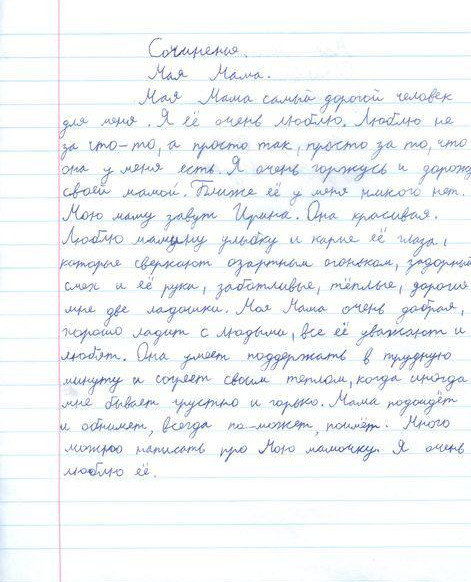 Сочинение.
Мая Мама.
Мая Мама самый дорогой человек
для меня. Я её очень люблю. Люблю не
за что-то, а просто так, просто за то, что
она у меня есть. Я очень горжусь и дорожу
своей мамой. Ближе её у меня никого нет.
Мою маму завут Ирина. Она красивая.
Люблю мамину улыбку и карие её глаза,
которые сверкают озартным огоньком, задорный
смех и её рука, заботливые, тёплые, дорогие
мне две ладошки. Моя Мама очень добрая,
хорошо ладит с людьма, все её уважают и
любят. Она умеет поддержать в трудную
минуту и согреет своим теплом, когда иногда
мне бывает грустно и горько. Мама подойдёт
и обнимет, всегда по-может, поймёт. Много
можно написать про Мою мамочку. Я очень
люблю её.